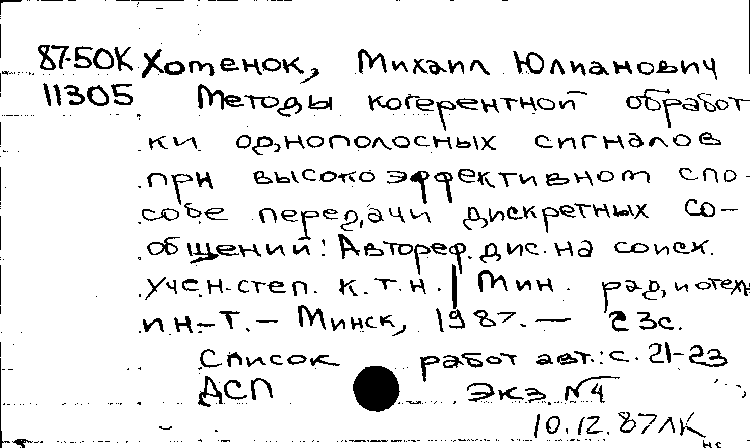 87-50К Хотенок, Михаил Юлианович
11305 Методы когерентной обработ
ки однополосных сигналов
при высокоэффективном спо-
собе передачи дискретных со-
общений: Автореф. дис. на соиск.
учен. степ. к.т.н. / Мин. радиотехн.
ин-т. – Минск, 1987. – 23с.
Список работ авт.: с. 21-23
ДСП экз. №4
10.12.87ЛК